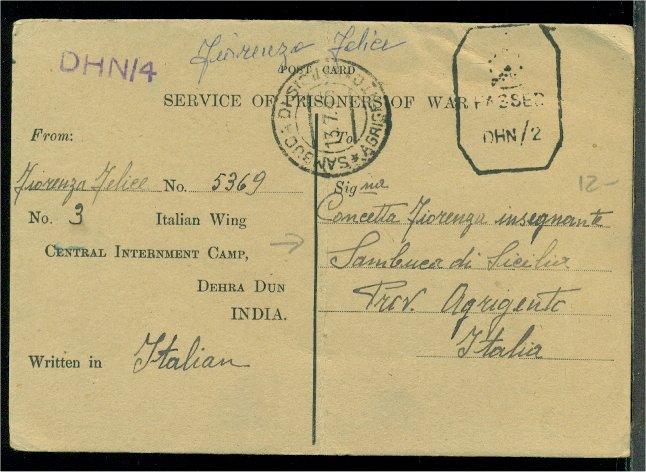 Fiorenza Felice
DHN/4
POST CARD
SERVICE OF PRISONERS OF WAR
PASSED
DHN/2
SAMBUCA DI SICILIA
AGRIGENTO
13.7.
From:
To
Fiorenza Felice No. 5369
No. 3 Italian Wing
CENTRAL INTERNMENT CAMP,
DEHRA DUN
INDIA.
Written in Italian
12-
Signa
Concetta Fiorenza insegnante
Sambuca di Sicilia
Prov. Agrigento
Italia